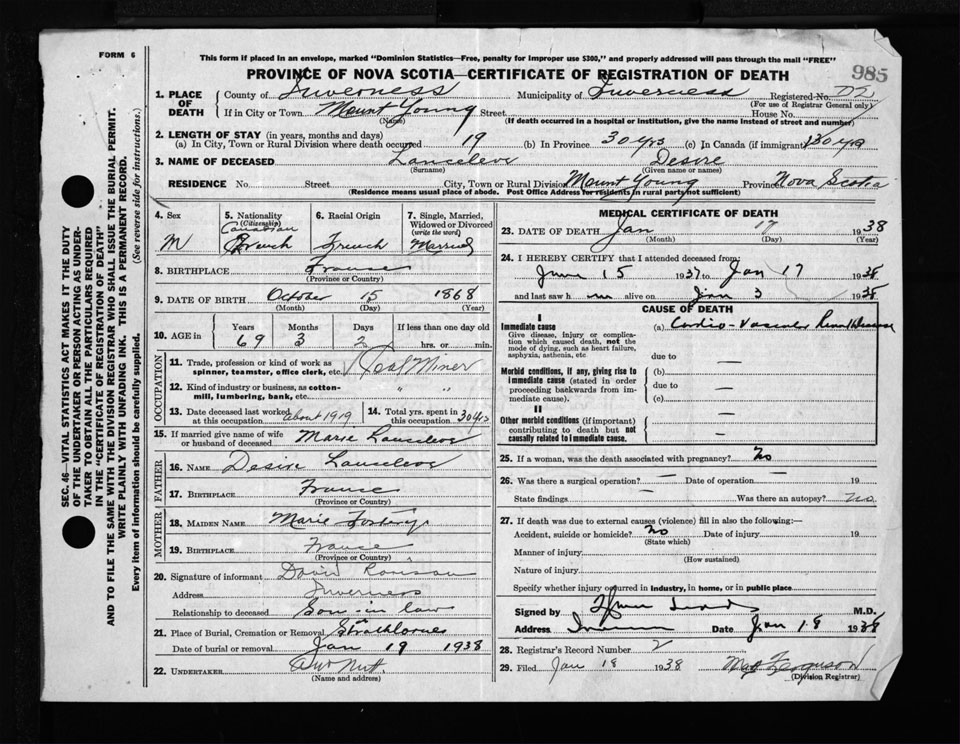 FORM 6
This form if placed in an envelope, marked "Dominion Statistics—Free, penalty for improper use $300," and properly addressed will pass through the mail "FREE"
985
PROVINCE OF NOVA SCOTIA—CERTIFICATE OF REGISTRATION OF DEATH
1. PLACE OF DEATH County of Inverness Municipality of Inverness Registered No. D2
(For use of Registrar General only)
If in City or Town Mount Young Street House No.
(Name) (If death occurred in a hospital or institution, give the name instead of street and number)
2. LENGTH OF STAY (in years, months and days)
(a) In City, Town or Rural Division where death occurred 19 (b) In Province 30 yrs (c) In Canada (if immigrant) 30 yrs
3. NAME OF DECEASED Lanceleve Desire
(Surname) (Given name or names)
RESIDENCE No. Street City, Town or Rural Division Mount Young Province Nova Scotia
(Residence means usual place of abode. Post Office Address for residents in rural parts not sufficient)
4. Sex M
5. Nationality (Citizenship) Canadian French
6. Racial Origin French
7. Single, Married, Widowed or Divorced (write the word) Married
8. BIRTHPLACE France
(Province or Country)
9. DATE OF BIRTH October 15 1868
(Month) (Day) (Year)
10. AGE in Years Months Days If less than one day old
69 3 2 hrs. or min.
OCCUPATION
11. Trade, profession or kind of work as spinner, teamster, office clerk, etc. Coal Miner
12. Kind of industry or business, as cotton-mill, lumbering, bank, etc. " "
13. Date deceased last worked at this occupation about 1919 14. Total yrs. spent in this occupation 30 yrs
15. If married give name of wife or husband of deceased Marie Lanceleve
FATHER
16. NAME Desire Lanceleve
17. BIRTHPLACE France
(Province or Country)
MOTHER
18. MAIDEN NAME Marie
19. BIRTHPLACE France
(Province or Country)
20. Signature of informant David
Address Inverness
Relationship to deceased Son-in law
21. Place of Burial, Cremation or Removal Strathlorne
Date of burial or removal Jan 19 1938
22. UNDERTAKER
(Name and address)
MEDICAL CERTIFICATE OF DEATH
23. DATE OF DEATH Jan 17 1938
(Month) (Day) (Year)
24. I HEREBY CERTIFY that I attended deceased from:
June 15 1937 to Jan 17 1938
and last saw him alive on Jan 3 1938
CAUSE OF DEATH
I
Immediate cause (a) Cardio-Vascular Renal Disease
Give disease, injury or complication which caused death, not the mode of dying, such as heart failure, asphyxia, asthenia, etc.
due to —
Morbid conditions, if any, giving rise to immediate cause (stated in order proceeding backwards from immediate cause). (b) —
due to —
(c) —
II
Other morbid conditions (if important) contributing to death but not causally related to immediate cause. —
25. If a woman, was the death associated with pregnancy? No
26. Was there a surgical operation? — Date of operation — 19
State findings — Was there an autopsy? no
27. If death was due to external causes (violence) fill in also the following:—
Accident, suicide or homicide? No Date of injury 19
(State which)
Manner of injury
(How sustained)
Nature of injury
Specify whether injury occurred in industry, in home, or in public place
Signed by M.D.
Address Inverness Date Jan 18 1938
28. Registrar's Record Number 2
29. Filed Jan 18 1938 Ferguson
(Division Registrar)
SEC. 46—VITAL STATISTICS ACT MAKES IT THE DUTY
OF THE UNDERTAKER OR PERSON ACTING AS UNDER-
TAKER TO OBTAIN ALL THE PARTICULARS REQUIRED
IN THE "CERTIFICATE OF REGISTRATION OF DEATH"
AND TO FILE THE SAME WITH THE DIVISION REGISTRAR WHO SHALL ISSUE THE BURIAL PERMIT.
WRITE PLAINLY WITH UNFADING INK. THIS IS A PERMANENT RECORD.
Every item of information should be carefully supplied. (See reverse side for instructions.)